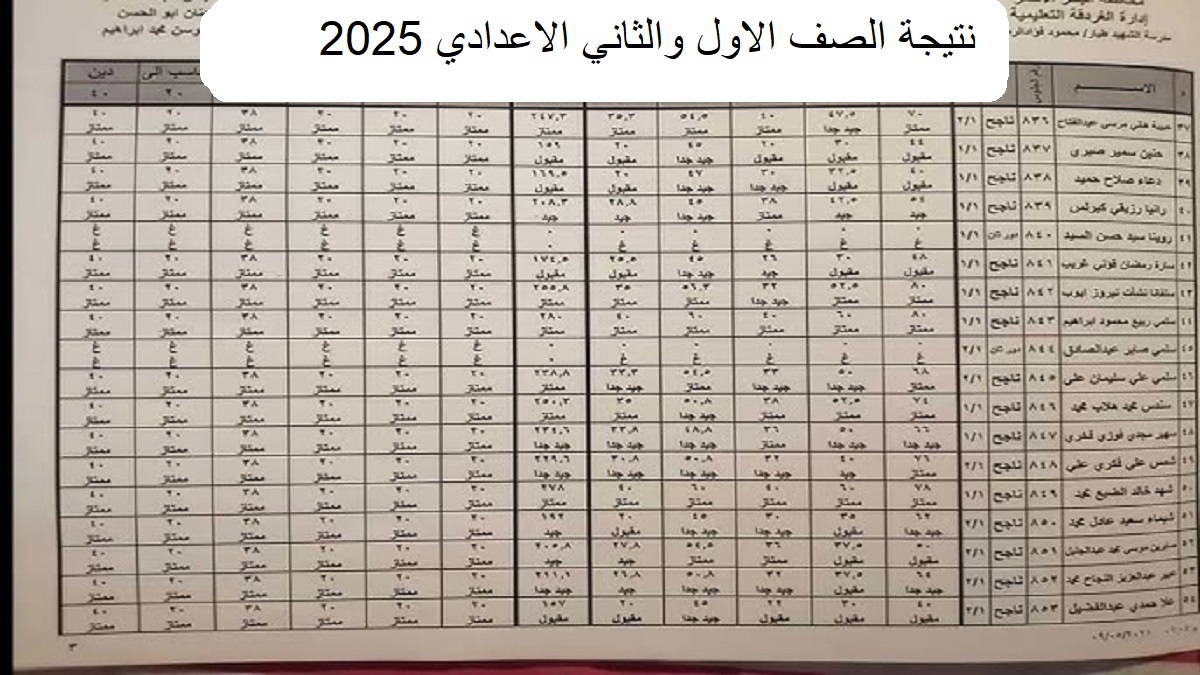 نتيجة الصف الاول والثاني الاعدادي 2025
إدارة الغردقة التعليمية
مدرسة الشهيد طيار/ محمود
ابو الحسن
محمد ابراهيم
م الاســـم دين
٤٠ ٢٠
٣٧ حبيبة هاني مرسى عبدالفتاح ٨٣٦ ناجح ٢/١ ٧٠ ٤٧,٥ ٤٠ ٥٤,٥ ٣٥,٣ ٢٤٧,٣ ٢٠ ٢٠ ٢٠ ٣٨ ٢٠ ٤٠
ممتاز جيد جدا ممتاز ممتاز ممتاز ممتاز ممتاز ممتاز ممتاز ممتاز ممتاز ممتاز
٣٨ حنين سمير صبرى ٨٣٧ ناجح ١/١ ٤٤ ٣٠ ٢٠ ٤٥ ٢٠ ١٥٩ ٢٠ ٢٠ ٢٠ ٣٨ ٢٠ ٤٠
مقبول مقبول مقبول جيد جدا مقبول مقبول ممتاز ممتاز ممتاز ممتاز ممتاز ممتاز
٣٩ دعاء صلاح حميد ٨٣٨ ناجح ١/١ ٤٠ ٣٢,٥ ٣٠ ٤٧ ٢٠ ١٦٩,٥ ٢٠ ٢٠ ٢٠ ٣٨ ٢٠ ٤٠
مقبول مقبول جيد جدا جيد جدا مقبول مقبول ممتاز ممتاز ممتاز ممتاز ممتاز ممتاز
٤٠ رانيا رزيقي كيرلس ٨٣٩ ناجح ١/١ ٥٤ ٤٢,٥ ٣٨ ٤٥ ٢٨,٨ ٢٠٨,٣ ٢٠ ٢٠ ٢٠ ٣٨ ٢٠ ٤٠
جيد جيد ممتاز جيد جدا جيد جيد ممتاز ممتاز ممتاز ممتاز ممتاز ممتاز
٤١ روينا سيد حسن السيد ٨٤٠ دور ثان ١/١ ٠ ٠ ٠ ٠ ٠ ٠ غ غ غ غ غ غ
غ غ غ غ غ ٠ غ غ غ غ غ غ
٤٢ سارة رمضان غريب ٨٤١ ناجح ١/١ ٤٨ ٣٠ ٢٦ ٤٥ ٢٥,٥ ١٧٤,٥ ٢٠ ٢٠ ٢٠ ٣٨ ٢٠ ٤٠
مقبول مقبول جيد جيد جدا مقبول مقبول ممتاز ممتاز ممتاز ممتاز ممتاز ممتاز
٤٣ نشأت نيروز ايوب ٨٤٢ ناجح ١/١ ٨٠ ٥٢,٥ ٣٢ ٥٦,٣ ٣٥ ٢٥٥,٨ ٢٠ ٢٠ ٢٠ ٣٨ ٢٠ ٤٠
ممتاز ممتاز جيد جدا ممتاز ممتاز ممتاز ممتاز ممتاز ممتاز ممتاز ممتاز ممتاز
٤٤ سلمي ربيع محمود ابراهيم ٨٤٣ ناجح ١/١ ٨٠ ٦٠ ٤٠ ٦٠ ٤٠ ٢٨٠ ٢٠ ٢٠ ٢٠ ٣٨ ٢٠ ٤٠
ممتاز ممتاز ممتاز ممتاز ممتاز ممتاز ممتاز ممتاز ممتاز ممتاز ممتاز ممتاز
٤٥ سلمي صابر عبدالصادق ٨٤٤ دور ثان ٢/١ ٠ ٠ ٠ ٠ ٠ ٠ غ غ غ غ غ غ
غ غ غ غ غ ٠ غ غ غ غ غ غ
٤٦ سلمي علي سليمان علي ٨٤٥ ناجح ٢/١ ٦٨ ٥٠ ٣٣ ٥٤,٥ ٣٣,٣ ٢٣٨,٨ ٢٠ ٢٠ ٢٠ ٣٨ ٢٠ ٤٠
ممتاز جيد جدا جيد جدا ممتاز جيد جدا ممتاز ممتاز ممتاز ممتاز ممتاز ممتاز ممتاز
٤٧ سندس محمد هلاب محمد ٨٤٦ ناجح ١/١ ٧٤ ٥٢,٥ ٣٨ ٥٠,٨ ٣٥ ٢٥٠,٣ ٢٠ ٢٠ ٢٠ ٣٨ ٢٠ ٤٠
ممتاز ممتاز ممتاز جيد جدا ممتاز ممتاز ممتاز ممتاز ممتاز ممتاز ممتاز ممتاز
٤٨ سهير مجدي فوزي فخري ٨٤٧ ناجح ١/١ ٦٦ ٥٠ ٣٦ ٤٨,٨ ٣٣,٨ ٢٣٤,٦ ٢٠ ٢٠ ٢٠ ٣٨ ٢٠ ٤٠
جيد جدا جيد جدا ممتاز جيد جدا جيد جدا جيد جدا ممتاز ممتاز ممتاز ممتاز ممتاز ممتاز
٤٩ شمس علي فكري علي ٨٤٨ ناجح ٢/١ ٧٦ ٤٠ ٣٢ ٥٠,٨ ٣٠,٨ ٢٢٩,٦ ٢٠ ٢٠ ٢٠ ٣٨ ٢٠ ٤٠
ممتاز جيد جيد جدا جيد جدا جيد جدا جيد جدا ممتاز ممتاز ممتاز ممتاز ممتاز ممتاز
٥٠ شهد خالد الضبع محمد ٨٤٩ ناجح ١/١ ٧٨ ٦٠ ٤٠ ٦٠ ٤٠ ٢٧٨ ٢٠ ٢٠ ٢٠ ٣٨ ٢٠ ٤٠
ممتاز ممتاز ممتاز ممتاز ممتاز ممتاز ممتاز ممتاز ممتاز ممتاز ممتاز ممتاز
٥١ شيماء سعيد عادل محمد ٨٥٠ ناجح ٢/١ ٦٢ ٣٥ ٣٠ ٤٥ ٢٠ ١٩٢ ٢٠ ٢٠ ٢٠ ٣٨ ٢٠ ٤٠
جيد جدا مقبول جيد جدا جيد جدا مقبول جيد ممتاز ممتاز ممتاز ممتاز ممتاز ممتاز
٥٢ موسى محمد عبدالجليل ٨٥١ ناجح ٢/١ ٥٠ ٣٧,٥ ٣٦ ٥٤,٥ ٢٧,٨ ٢٠٥,٨ ٢٠ ٢٠ ٢٠ ٣٨ ٢٠ ٤٠
مقبول مقبول ممتاز ممتاز جيد جيد ممتاز ممتاز ممتاز ممتاز ممتاز ممتاز
٥٣ عبير عبدالعزيز النجاح محمد ٨٥٢ ناجح ٢/١ ٦٤ ٣٧,٥ ٣٢ ٥٠,٨ ٢٦,٨ ٢١١,١ ٢٠ ٢٠ ٢٠ ٣٨ ٢٠ ٤٠
جيد جدا مقبول جيد جدا جيد جدا جيد جيد جدا ممتاز ممتاز ممتاز ممتاز ممتاز ممتاز
٥٤ علا حمدي عبدالفضيل ٨٥٣ ناجح ٢/١ ٤٠ ٣٠ ٢٢ ٤٥ ٢٠ ١٥٧ ٢٠ ٢٠ ٢٠ ٣٨ ٢٠ ٤٠
مقبول مقبول مقبول جيد جدا مقبول مقبول ممتاز ممتاز ممتاز ممتاز ممتاز ممتاز
٠٩/٠٥/٢٠٢١
٣